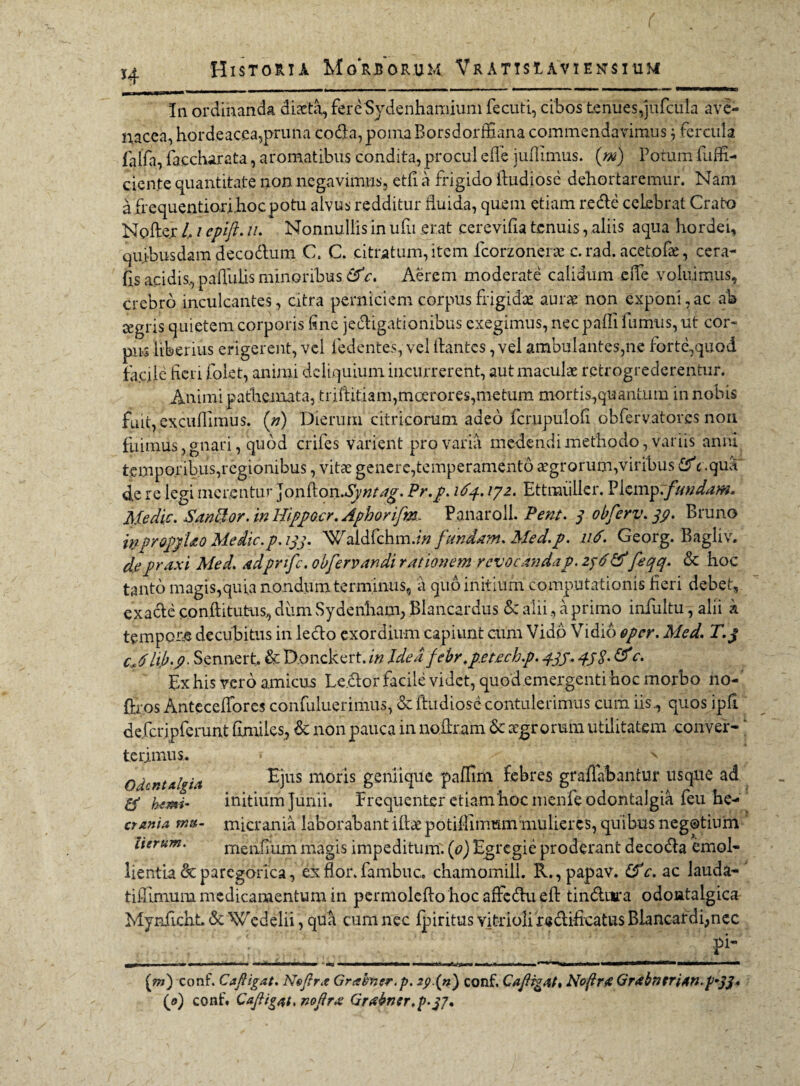 14 HISTORIA MORBORUM VRATISLAVIENSIUM
In ordinanda diæta, ferè Sydenhamium ſecuti, cibos tenues, juſcula ave-
nacea, hordeacea, pruna cocta, poma Borsdorffiana commendavimus; fercula
ſalſa, ſaccharata, aromatibus condita, procul eſſe juſſimus. (m) Potum ſuffi-
ciente quantitate non negavimus, etſi à frigido ſtudiosè dehortaremur. Nam
à frequentiori hoc potu alvus redditur fluida, quem etiam rectè celebrat Crato
Noſter l. 1 epiſt. 11. Nonnullis in uſu erat cereviſia tenuis, aliis aqua hordei,
quibusdam decoctum C. C. citratum, item ſcorzoneræ c. rad. acetoſæ, cera-
ſis acidis, paſſulis minoribus &c. Aërem moderatè calidum eſſe voluimus,
crebrò inculcantes, citra perniciem corpus frigidæ auræ non exponi, ac ab
ægris quietem corporis ſine jectigationibus exegimus, nec paſſi ſumus, ut cor-
pus liberius erigerent, vel ſedentes, vel ſtantes, vel ambulantes, ne fortè, quod
facilè fieri ſolet, animi deliquium incurrerent, aut maculæ retrogrederentur.
Animi pathemata, triſtitiam, mœrores, metum mortis, quantum in nobis
fuit, excuſſimus. (n) Dierum citricorum adeò ſcrupuloſi obſervatores non
fuimus, gnari, quòd criſes varient pro varia medendi methodo, variis anni
temporibus, regionibus, vitæ genere, temperamento ægrorum, viribus &c. quâ
de re legi merentur Jonſton. Syntag. Pr. p. 164. 172. Ettmüller. Plemp. fundam.
Medic. Sanctor. in Hippocr. Aphoriſm. Panaroll. Pent. 3 obſerv. 39. Bruno
in propylæo Medic. p. 133. Waldſchm. in fundam. Med. p. 116. Georg. Bagliv.
de praxi Med. ad priſc. obſervandi rationem revocanda p. 256 & ſeqq. & hoc
tantò magis, quia nondum terminus, à quo initium computationis fieri debet,
exactè conſtitutus, dum Sydenham, Blancardus & alii, à primo inſultu, alii à
tempore decubitus in lecto exordium capiunt cum Vido Vidio oper. Med. T. 3
c. 6 lib. 9. Sennert. & Donckert. in Idea febr. petech. p. 435. 458. &c.
Ex his verò amicus Lector facilè videt, quod emergenti hoc morbo no-
ſtros Anteceſſores conſuluerimus, & ſtudiosè contulerimus cum iis, quos ipſi
deſcripſerunt ſimiles, & non pauca in noſtram & ægrorum utilitatem conver-
terimus.
Odontalgia & hemi-crania mulierum.
Ejus moris geniique paſſim febres graſſabantur usque ad
initium Junii. Frequenter etiam hoc menſe odontalgiâ ſeu he-
micraniâ laborabant iſtæ potiſſimùm mulieres, quibus negotium
menſium magis impeditum. (o) Egregiè proderant decocta emol-
lientia & paregorica, ex flor. ſambuc. chamomill. R., papav. &c. ac lauda-
tiſſimum medicamentum in permoleſto hoc affectu eſt tinctura odontalgica
Mynſicht. & Wedelii, quâ cum nec ſpiritus vitrioli rectificatus Blancardi, nec
pi-
(m) conf. Caſtigat. Noſtræ Grabner. p. 29. (n) conf. Caſtigat. Noſtræ Grabnerian. p. 33.
(o) conf. Caſtigat. noſtræ Grabner. p. 37.